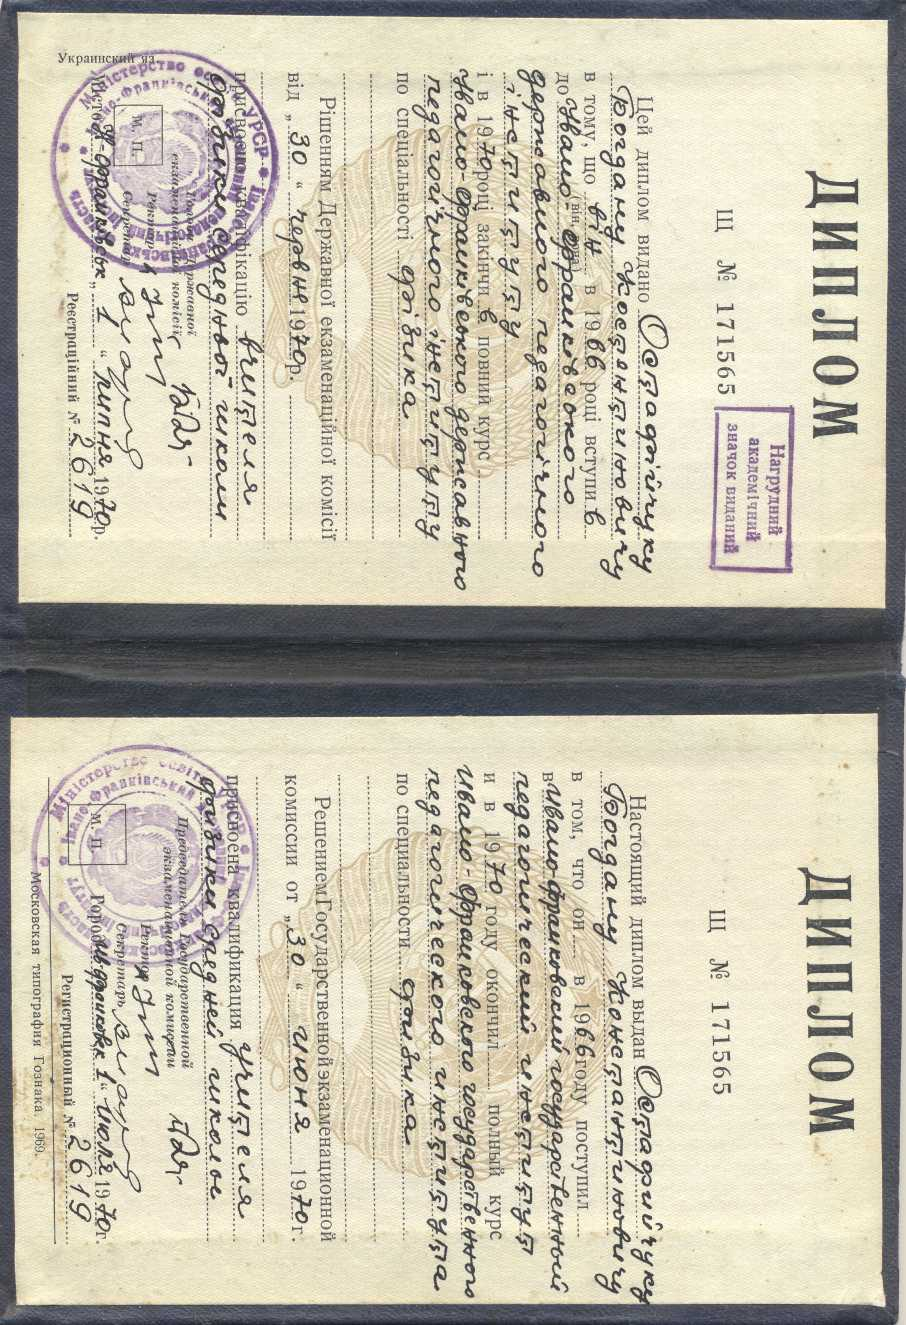 ДИПЛОМ
Щ № 171565
Нагрудний
академічний
значок виданий
Цей диплом видано Остафійчуку
Богдану Костянтиновичу
в тому, що він в 1966 році вступив
(він, вона)
до Івано-Франківського
державного педагогічного
інституту
і в 1970 році закінчив повний курс
Івано-Франківського державного
педагогічного інституту
по спеціальності фізика
Рішенням Державної екзаменаційної комісії
від „30“ червня 1970 р.
присвоєно кваліфікацію вчителя
фізики середньої школи
Голова Державної
екзаменаційної комісії
Ректор
Секретар
М. П.
Місто І-Франківськ „1“ липня 1970 р.
Реєстраційний № 2619
Украинский яз.
ДИПЛОМ
Щ № 171565
Настоящий диплом выдан Остафийчуку
Богдану Константиновичу
в том, что он в 1966 году поступил
в Ивано-Франковский государственный
педагогический институт
и в 1970 году окончил полный курс
Ивано-Франковского государственного
педагогического института
по специальности физика
Решением Государственной экзаменационной
комиссии от „30“ июня 1970 г.
присвоена квалификация учителя
физики средней школы
Председатель Государственной
экзаменационной комиссии
Ректор
Секретарь
М. П.
Город И-Франковск „1“ июля 1970 г.
Регистрационный № 2619
Московская типография Гознака. 1969.